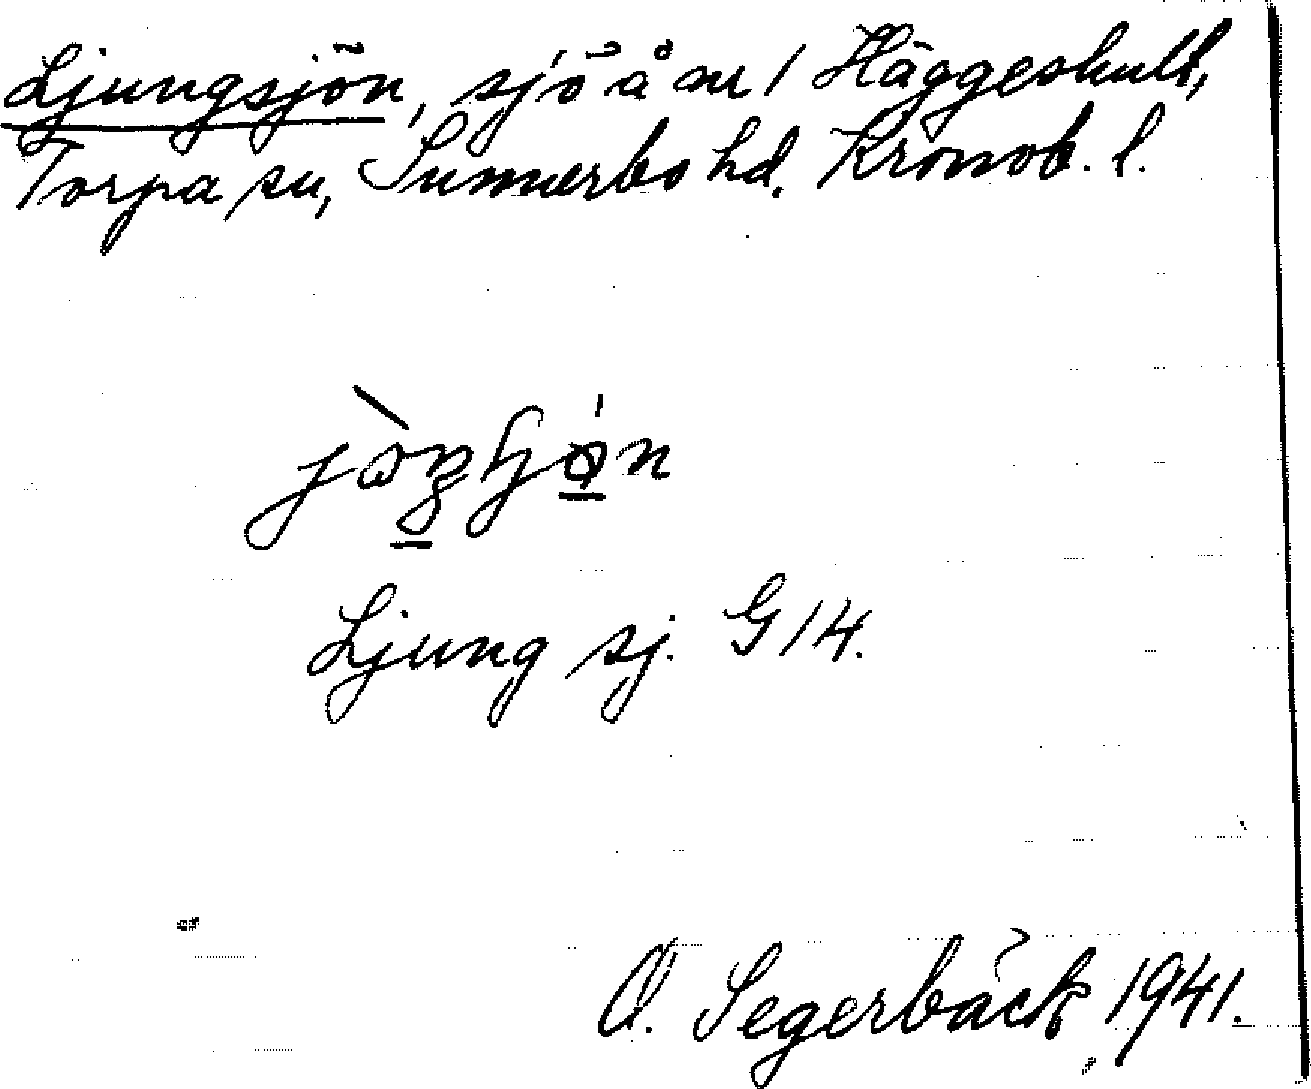 Ljungsjön, sjö å nr 1 Häggeshult,
Torpa sn, Sunnerbo hd, Kronob. l.
Ljung sj. G 14.
O. Segerbäck 1941.